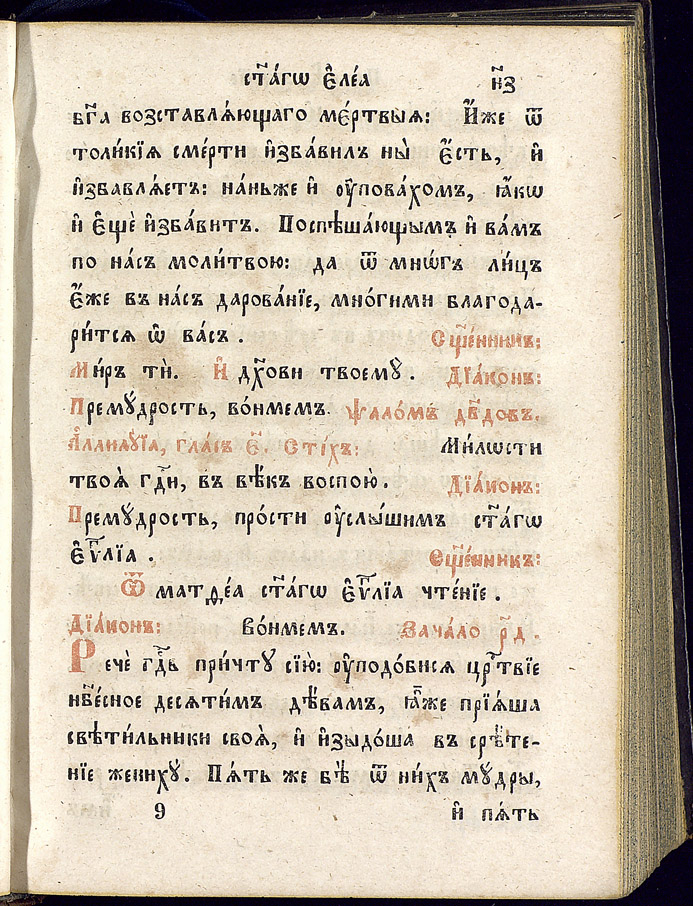 ст҃а́гѡ є҆ле́а н҃з
бг҃а возставлѧ́ющаго ме́ртвыѧ: И҆́же ѿ
толи́кїѧ сме́рти и҆зба́вилъ ны̀ є҆́сть, и҆
и҆збавлѧ́етъ: на́ньже и҆ ᲂу҆пова́хомъ, ꙗ҆́кѡ
и҆ є҆щѐ и҆зба́витъ. Поспѣша́ющымъ и҆ ва́мъ
по на́съ моли́твою: да ѿ мнѡ́гъ ли́цъ
є҆́же въ на́съ дарова́нїе, мно́гими благода-
ри́тсѧ ѡ҆ ва́съ. Сщ҃е́нникъ:
Ми́ръ тѝ. И҆ дх҃ови твоемꙋ̀. Дїа́конъ:
Премꙋ́дрость, во́нмемъ. ѱало́мъ дв҃довъ.
А҆ллилꙋ́їа, гла́съ є҃. Сті́хъ: Ми́лѡсти
твоѧ̀ гдⷭ҇и, въ вѣ́къ воспою̀. Дїа́конъ:
Премꙋ́дрость, про́сти ᲂу҆слы́шимъ ст҃а́гѡ
є҆ѵⷢ҇лїа. Сщ҃е́нникъ:
Ѿ матѳе́а ст҃а́гѡ є҆ѵⷢ҇лїа чте́нїе.
Дїа́конъ: Во́нмемъ. Зача́ло р҃д.
Речѐ гдⷭ҇ь при́чтꙋ сїю̀: ᲂу҆подо́бисѧ црⷭ҇твїе
нбⷭ҇е́сное десѧти́мъ дѣ́вамъ, ꙗ҆́же прїѧ́ша
свѣти́льники своѧ̀, и҆ и҆зыдо́ша въ срѣ́те-
нїе женихꙋ̀. Пѧ́ть же бѣ̀ ѿ ни́хъ мꙋ́дры,
9 и҆ пѧ́ть